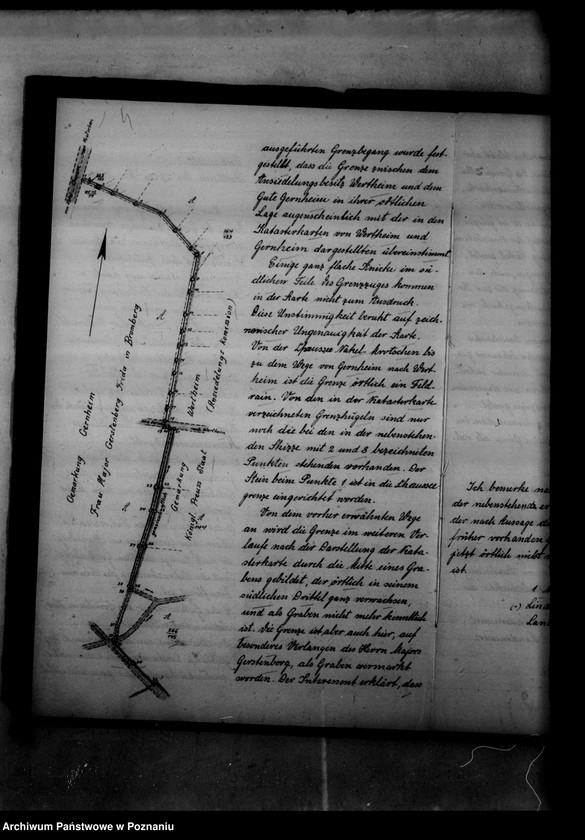 ausgeführten Grenzbegang wurde fest-
gestellt, dass die Grenze zwischen dem
Ansiedelungsbesitz Wertheim und dem
Gute Gernheim in ihrer örtlichen
Lage augenscheinlich mit der in den
Katasterkarten von Wertheim und
Gernheim dargestellten übereinstimmt
Einige ganz flache Knicke im sü-
dlichen Teile des Grenzzuges kommen
in der Karte nicht zum Ausdruck.
Diese Unstimmigkeit beruht auf zeich-
nerischer Ungenauigkeit der Karte.
Von der Chaussee Nakel-Mrotschen bis
zu dem Wege von Gernheim nach Wert-
heim ist die Grenze örtlich ein Feld-
rain. Von den in der Katasterkarte
verzeichneten Grenzhügeln sind nur
noch die bei den in der nebenstehen-
den Skizze mit 2 und 3 bezeichneten
Punkten stehenden vorhanden. Der
Stein beim Punkte 1 ist in die Chaussee
grenze eingerichtet worden.
Von dem vorher erwähnten Wege
an wird die Grenze im weiteren Ver-
laufe nach der Darstellung der Kata-
sterkarte durch die Mitte eines Gra-
bens gebildet, der örtlich in seinem
südlichen Drittel ganz verwachsen,
und als Graben nicht mehr kenntlich
ist. Die Grenze ist aber auch hier, auf
besonderes Verlangen des Herrn Majors
Gerstenberg, als Graben vermarkt
worden. Der Interessent erklärt, dass
Gemarkung Gernheim
Frau Major Gerstenberg Frida in Bromberg
Gemarkung Wertheim
Königl. Preuss. Staat (Ansiedelungs kommission)
Ich bemerke
der nebenstehende
der nach Aussage
früher vorhanden
jetzt örtlich nicht
ist.
Archiwum Państwowe w Poznaniu